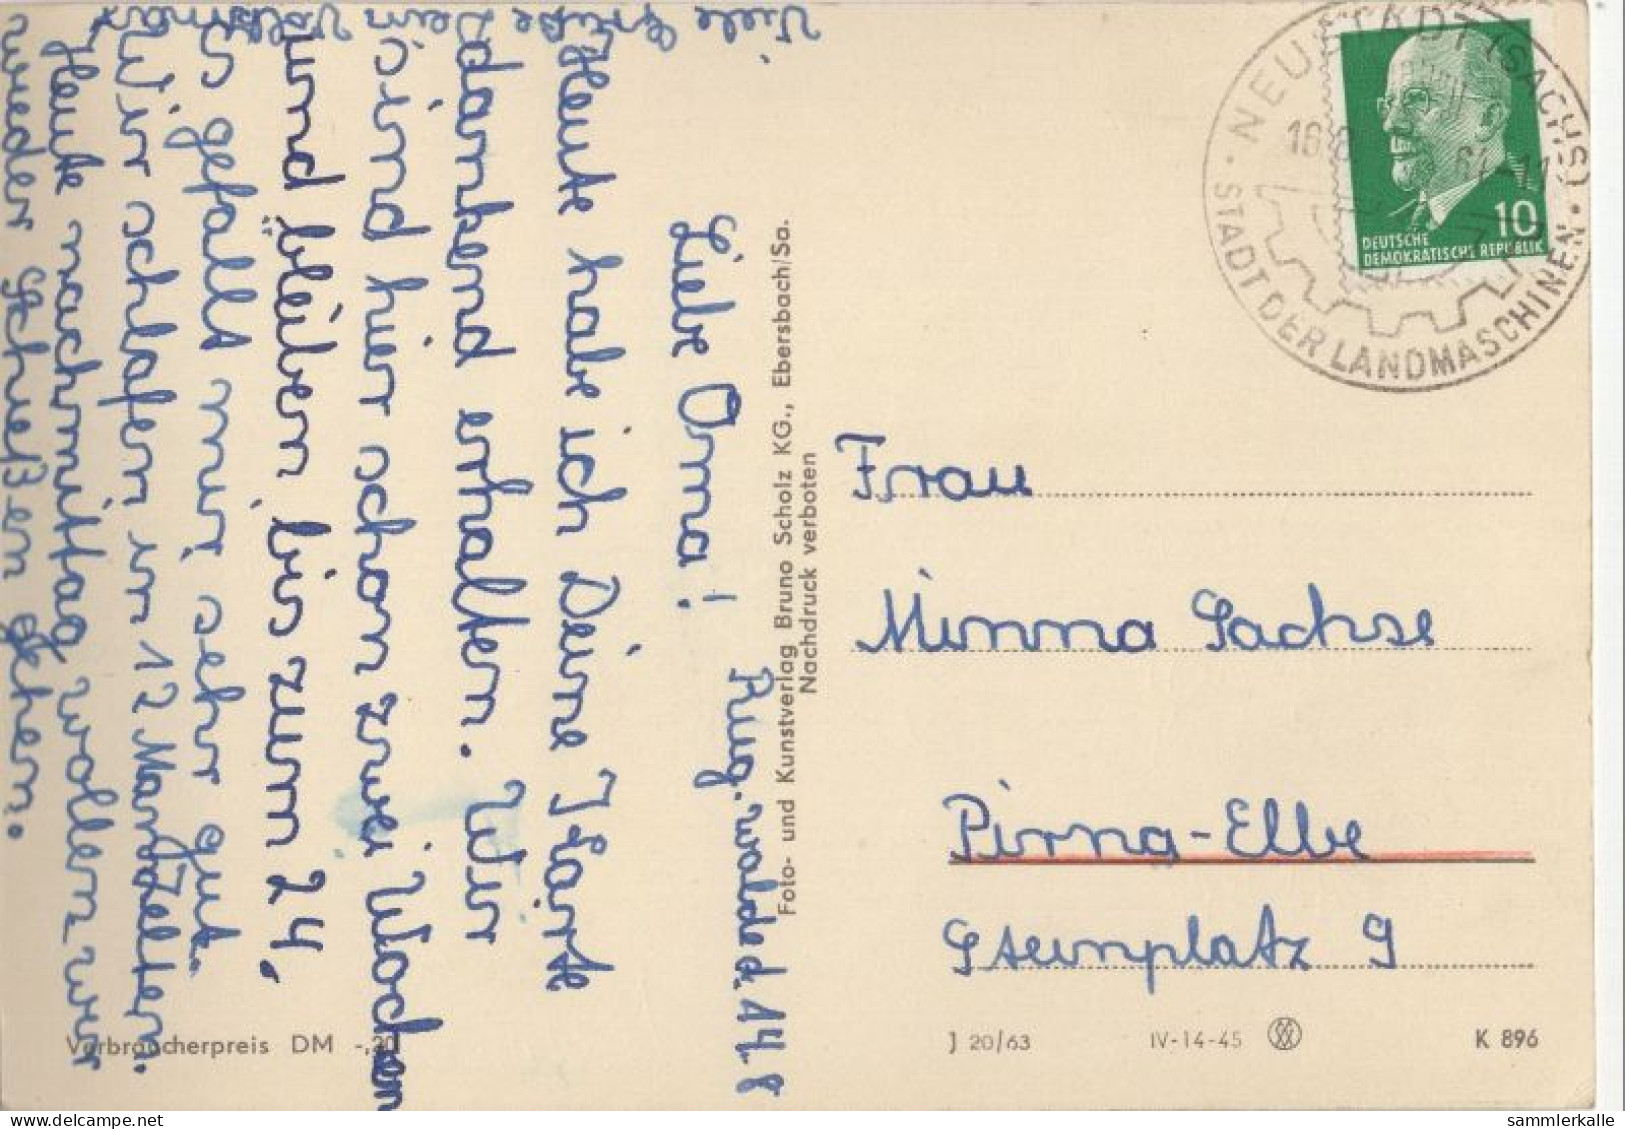 Rug.walde d. 14.8
Liebe Oma!
Heute habe ich Deine Karte
dankend erhalten. Wir
sind hier schon zwei Wochen
und bleiben bis zum 24,
Es gefällt mir sehr gut.
Wir schlafen in 12 Mannzelten.
Heute nachmittag wollen wir
wieder Schießen gehen.
Viele Grüße Dein
Foto- und Kunstverlag Bruno Scholz KG., Ebersbach/Sa.
Nachdruck verboten
NEUSTADT (SACHS)
STADT DER LANDMASCHINEN
10
DEUTSCHE
DEMOKRATISCHE REPUBLIK
Frau
Minna Sachse
Pirna-Elbe
Steinplatz 9
Verbraucherpreis DM -,20
J 20/63 IV-14-45 K 896
sammlerkalle